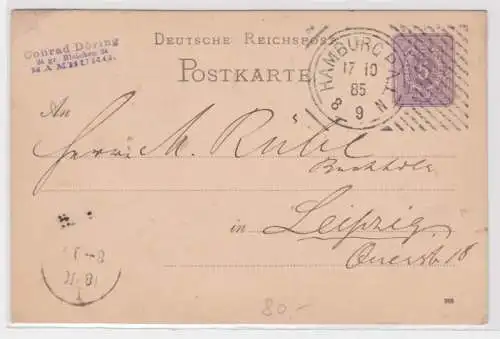 Conrad Döring
34 gr. Bleichen 34
HAMBURG.
DEUTSCHE REICHSPOST
POSTKARTE
HAMBURG P.A.1.
17 10
85
8 9 N
5
An
Herrn M. Rühl
Buchhdlr
in Leipzig
Querstr. 18
8-9
18 10
1
80.-